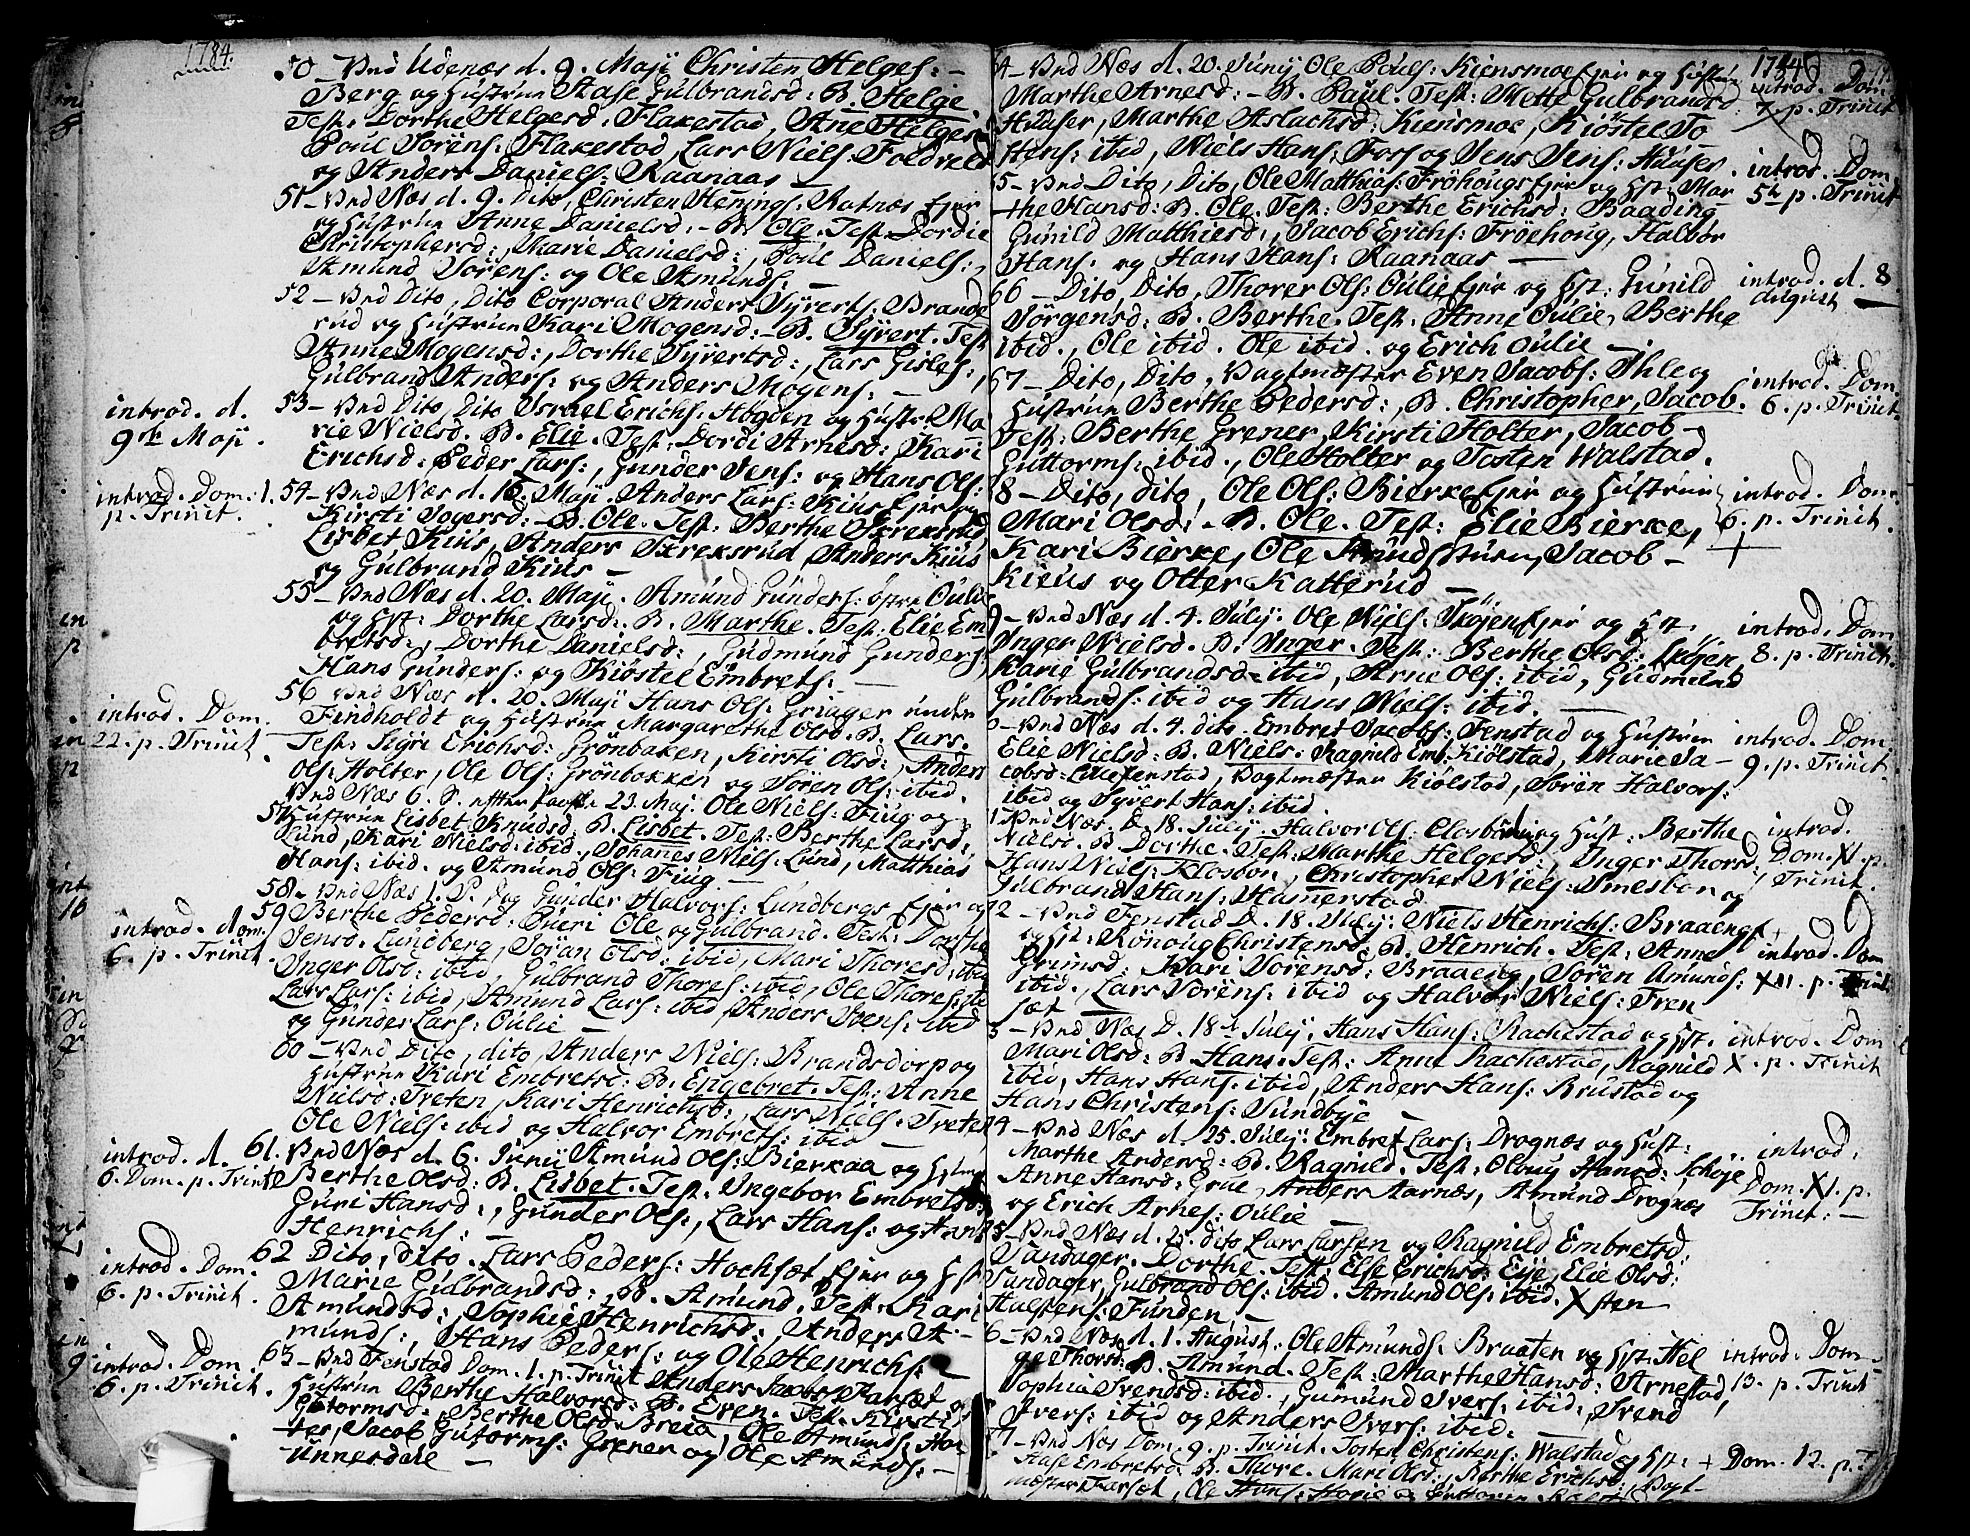 1784.
50 – Ved Udenæs d. 9. Maji Christen Helges: –
Berg og Hustrue Aase Gulbrandsd: B. Helge.
Test. Dorthe Helgesd. Flakestad, Ane Helgesd
Poul Sörens: Flakestad, Lars Niels: Foldveld
og Anders Daniels: Raanaas –
51 – Ved Næs d. 9. Dito, Christen Hennings: Ejer
og Hustrue Anne Danielsd: – B. Ole. Test. Dordie
Christophersd:, Marie Danielsd:, Poul Daniels:,
Amund Sörens: og Ole Amunds: –
52 – Ved Dito, Dito Corporal Anders Syverts: Brande
rud og Hustrue Kari Mogensd: – B. Syvert. Test
Anne Mogensd:, Dorthe Syvertsd:, Lars Gisles:,
Gulbrand Anders: og Anders Mogens: –
introd. d.
9de Maji.
53 – Ved Dito, Dito Israel Erichs: Högden og Hustr: Ma
rie Nielsd. B. Elie. Test. Dordi Arnesd: Kari
Erichsd: Peder Lars:, Gunder Jens: og Hans Ols:
introd. Dom: 1.
p. Trinit.
54 – Ved Næs d. 16. Maji. Anders Lars: Kius Ejer og
Kirsti Jogersd: – B. Ole. Test: Berthe Skreksrud
Lisbet Kius, Anders Skreksrud, Anders Kius
og Gulbrand Kius –
55 – Ved Næs d. 20. Maji. Amund Gunders: östre Oulie
og Hst: Dorthe Larsd: B. Marthe. Test: Elie Em
bretsd:, Dorthe Danielsd:, Gudmund Gunders:,
Hans Gunders: og Kiöstel Embrets: –
introd. Dom.
22. p. Trinit. –
56 Ved Næs d. 20. Maji Hans Ols: Griager under
Findholdt og Hustrue Margarethe Olsd. B. Lars.
Test: Sigri Erichsd: Grönbaken, Kirsti Olsd:, Anders
Ols: Holter, Ole Ols: Grönbakken og Sören Ols: ibid.
57 Ved Næs 6. S. efter Paaske 23. Maj. Ole Niels: Fiug og
Hustrue Lisbet Knudsd: B. Lisbet. Test: Berthe Larsd:
Lund, Kari Nielsd: ibid, Johanes Niels: Lund, Matthias
Hans: ibid. og Amund Ols: Fiug –
introd. dom.
6. p. Trinit.
58 – Ved Næs 1. P. dag Gunder Halvors: Lundbergs Ejer og
59 Berthe Pedersd: Pueri Ole og Gulbrand. Test: Dorthe
Jensd. Lundberg, Joran Olsd: ibid, Mari Thoresd: ibid
Inger Olsd: ibid, Gulbrand Thores: ibid, Ole Thores: ibid
Lars Lars: ibid, Amund Lars: ibid, Anders Svens: ibid
og Gunder Lars: Oulie –
60 – Ved Dito, dito, Anders Niels: Brandsdorp og
Hustrue Kari Embretsd: B. Engebret. Test: Anne
Nielsd: Treten, Kari Henrichsd:, Lars Niels: Treten
Ole Niels: ibid og Halvor Embrets: ibid –
introd. d.
6. Dom. p. Trinit
61. Ved Næs d. 6. Junij Amund Ols: Bierkaa og Hstrue
Berthe Olsd: B. Lisbet. Test. Ingebor Embretsd:
Guri Hansd:, Gunder Ols:, Lars Hans: og Hans
Henrichs: –
introd. Dom.
6. p. Trinit.
62 Dito, dito. Lars Peders: Hochsæt Ejer og Hst
Marie Gulbrandsd:, B. Amund. Test: Kari
Amundsd:, Sophie Henrichsd:, Anders A –
munds:, Hans Peders: og Ole Henrichs:
introd. Dom.
6. p. Trinit.
63 – Ved Fenstad Dom. 1. p. Trinit. Anders Jacobs: Farsæt og
Hustrue Berthe Halvorsd: B. Even. Test. Kirsti
Gutormsd:, Berthe Olsd. Breia, Ole Amunds: Hol
ter, Jacob Gutorms: Grener og Ole Amunds: –
Unnesdele –
1784
64 – Ved Næs d. 20. Junij Ole Pouls: Kiensmoe Ejer og Hustrue
Marthe Arnesd: – B. Paul. Test: Mette Gulbrandsd:
Huuser, Marthe Aslachsd: Kiensmoe, Kiöstel To
stens: ibid, Niels Hans: Foss og Jens Jens: Huuser
introd. Dom
7. p. Trinit.
65 – Ved Dito, Dito, Ole Matthias: Fröhougs Ejer og Hst: Mar
the Hansd: B. Ole. Test: Berthe Erichsd: Baading
Gunild Matthiesd:, Jacob Erichs: Fröehoug, Halvor
Hans: og Hans Hans: Raanaas –
introd. Dom.
5te p. Trinit
66 – Dito, Dito, Thorer Ols: Oulie Ejer og Hst: Gunild
Jörgensd: B. Berthe. Test. Anne Oulie, Berthe
ibid., Ole ibid. Ole ibid. og Erich Oulie –
introd. d. 8
August
67 – Dito, Dito, Vagtmæster Even Jacobs: Ihle og
Hustrue Berthe Pedersd:, B. Christopher, Jacob.
Test: Berthe Grener, Kirsti Holter, Jacob –
Guttorms: ibid., Ole Holter og Tosten Walstad.
introd. Dom
6. p. Trinit.
8 – Dito, dito, Ole Ols: Bierke Ejer og Hustrue
Mari Olsd: – B. Ole. Test: Elie Bierke,
Kari Bierke, Ole, Jacob –
Kieus og Otter Katterud –
introd. Dom
6. p. Trinit.
9 – Ved Næs d. 4. Julij. Ole Niels: Skøjen Ejer og Hst:
Inger Nielsd. B. Inger. Test: Berthe Olsd: Skøjen,
Karie Gulbrandsd: ibid, Arne Ols: ibid, Gudmund
Gulbrands: ibid og Hans Niels: ibid. –
introd. Dom
8. p. Trinit.
0 – Ved Næs d. 4. dito. Embret Jacobs: Fenstad og Hustrue
Elie Nielsd: B. Niels. Ragnild Emb: Kiölstad, Marie Ja –
cobsd: Fenstad, Vagtmæster Kiölstad, Sören Halvors:
ibid og Syvert Hans: ibid.
introd. Dom
9. p. Trinit.
1. Ved Næs. D. 18. Julij. Halvor Ols: og Hust: Berthe
Nielsd. B. Dorthe. Test: Marthe Helgesd:, Inger Thorsd:
Hans Niels: Klosbøn, Christopher Niels: Smesbøn og
Gulbrand Hans: Hamerstad.
introd.
Dom. XI. p.
Trinit.
72 – Ved Fenstad D. 18. Julij. Niels Henrichs: Braaengt
og Hst: Rönoug Christensd: B. Henrich. Test: Anne
Grimsd: Kari Sörensd: Braaeng, Sören Amunds:
ibid., Lars Sörens: ibid og Halvor Niels: Fren
sæt –
introd. Dom
XII. p. Trinit:
3 – Ved Næs D. 18de Julij. Hans Hans: Rachestad og Hst.
Mari Olsd: B. Hans. Test: Anne Rachestad, Ragnild
ibid, Hans Hans: ibid, Anders Hans: Brustad og
Hans Christens: Sundbye –
introd. Dom
X. p. Trinit
74 – Ved Næs d. 25. Julij. Embret Lars: Drognæs og Hust:
Marthe Andersd: B. Ragnild. Test. Oloug Hansd: Schøje
Anne Hansd: Grue, Anders Aarnæs, Amund Drognæs
og Erich Arnes: Oulie –
introd:
Dom. XI. p.
Trinit: –
5 – Ved Næs d. 25. dito Lars Larsen og Ragnild Embretsd.
Sandager. Dorthe. Test: Else Erichsd: Eye, Elie Olsd:
Sundager, Gulbrand Ols: ibid. Amund Ols: ibid. X sten
Halstens: Funden –
6 – Ved Næs d. 1. August. Ole Amunds. Braaten og Hst. Hel
ge Thorsd: B. Amund. Test: Marthe Hansd: Arnestad,
Sophia Svendsd: ibid., Gumund Ivers: ibid:, Svend
Ivers: ibid og Anders Ivers: ibid.
introd. Dom –
13. p. Trinit
7 – Ved Næs Dom. 9. p. Trinit. Tosten Christens: Walstad og Hst:
Aase Embretsd: B. Thore. Mari Olsd:, Berthe Erichsd:, Vagt –
mæster Farsæt, Ole Hans:
+ Dom. 12. p. T